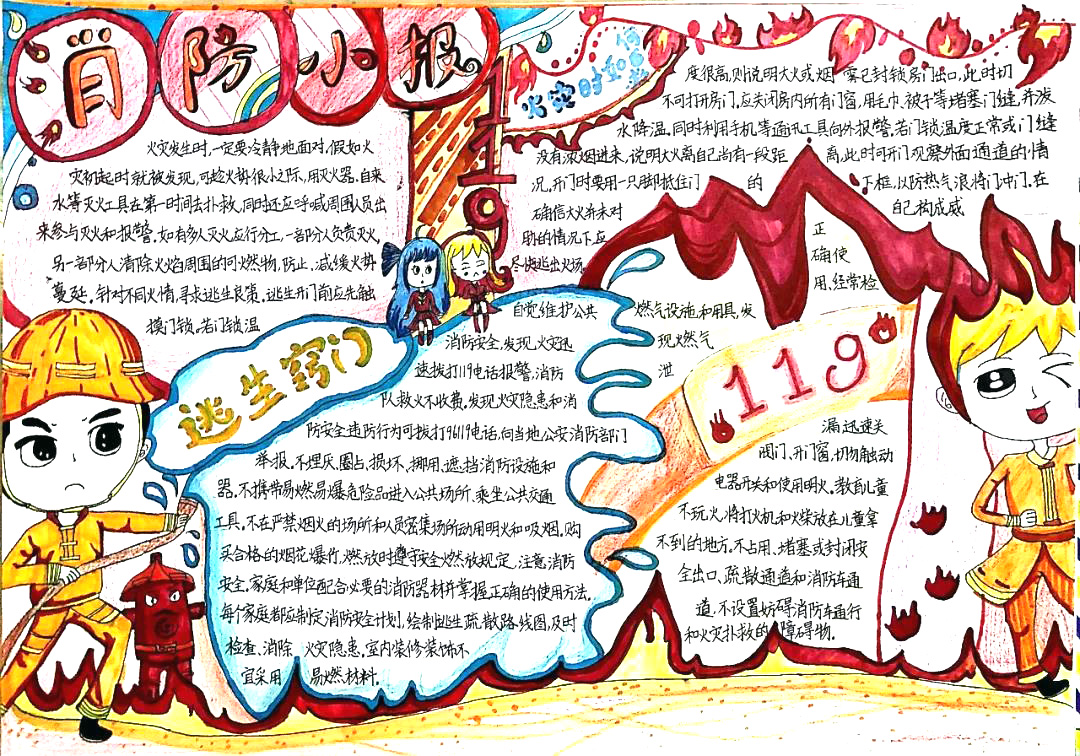 消防小报
119
火灾时如何自救
火灾发生时,一定要冷静地面对,假如火
灾初起时就被发现,可趁火势很小之际,用灭火器、自来
水等灭火工具在第一时间去扑救,同时还应呼喊周围人员出
来参与灭火和报警,如有多人灭火应行分工,一部分人负责灭火,
另一部分人清除火焰周围的可燃物,防止、减缓火势
蔓延。针对不同火情,寻求逃生良策。逃生开门前应先触
摸门锁,若门锁温
度很高,则说明大火或烟雾已封锁房门出口,此时切
不可打开房门,应关闭房内所有门窗,用毛巾、被子等堵塞门缝,并泼
水降温,同时利用手机等通讯工具向外报警,若门锁温度正常或门缝
没有浓烟进来,说明大火离自己尚有一段距离,此时可开门观察外面通道的情
况,开门时要用一只脚抵住门的下框,以防热气浪将门冲门,在
确信大火并未对自己构成威
胁的情况下应
尽快逃出火场。
逃生窍门
自觉维护公共
消防安全,发现火灾迅
速拨打119电话报警,消防
队救火不收费,发现火灾隐患和消
防安全违防行为可拨打96119电话,向当地公安消防部门
举报。不埋厌、圈占、损坏、挪用、遮挡消防设施和
器。不携带易燃易爆危险品进入公共场所、乘坐公共交通
工具。不在严禁烟火的场所和人员密集场所动用明火和吸烟,购
买合格的烟花爆竹,燃放时遵守安全燃放规定,注意消防
安全。家庭和单位配合必要的消防器材并掌握正确的使用方法,
每个家庭都应制定消防安全计划,绘制逃生疏散路线图,及时
检查、消除火灾隐患,室内装修装饰不
宜采用易燃材料。
正
确使
用、经常检
燃气设施和用具,发
现燃气
泄
119
漏迅速关
阀门、开门窗,切勿触动
电器开关和使用明火。教育儿童
不玩火,将打火机和火柴放在儿童拿
不到的地方。不占用、堵塞或封闭安
全出口、疏散通道和消防车通
道,不设置妨碍消防车通行
和火灾扑救的障碍物.